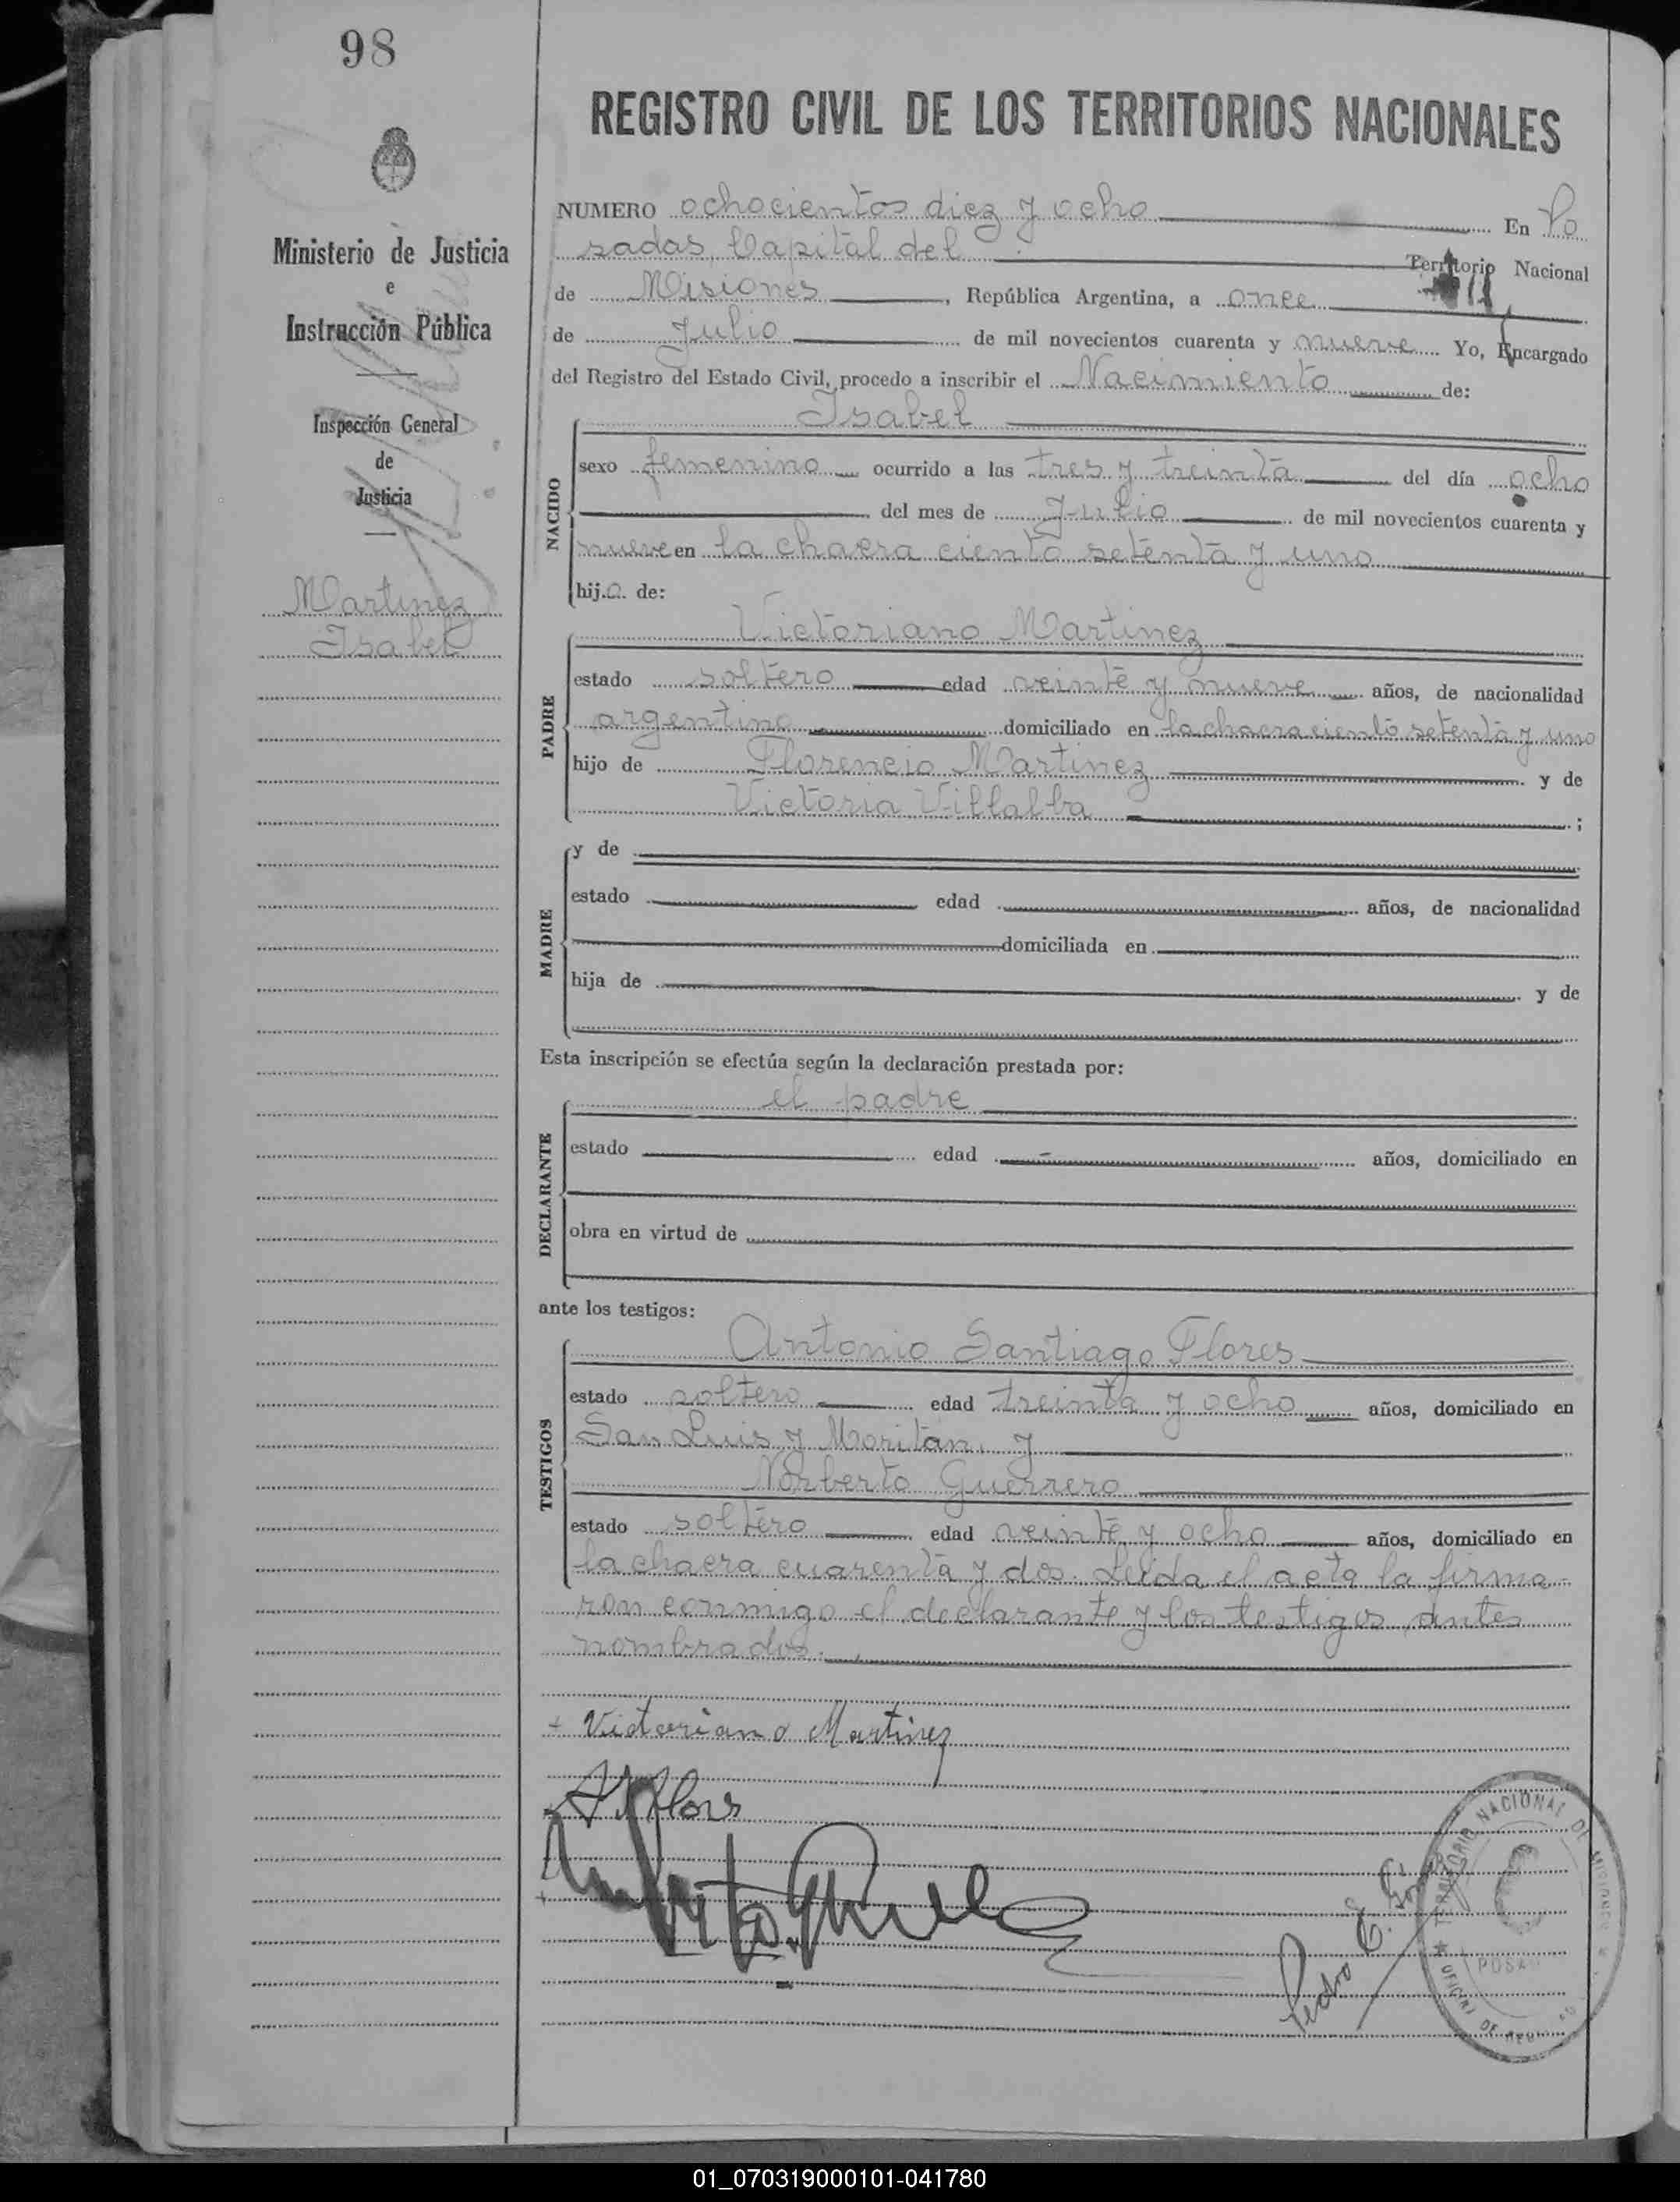 98
REGISTRO CIVIL DE LOS TERRITORIOS NACIONALES
Ministerio de Justicia
e
Instrucción Pública
Inspección General
de
Justicia
Martinez
Isabel
NUMERO ochocientos diez y ocho En Po
sadas, Capital del Territorio Nacional
de Misiones, República Argentina, a once
de Julio de mil novecientos cuarenta y nueve Yo, Encargado
del Registro del Estado Civil, procedo a inscribir el Nacimiento de:
NACIDO
Isabel
sexo femenino ocurrido a las tres y treinta del día ocho
del mes de Julio de mil novecientos cuarenta y
nueve en la chacra ciento setenta y uno
hija de:
PADRE
Victoriano Martinez
estado soltero edad veinte y nueve años, de nacionalidad
argentino domiciliado en la chacra ciento setenta y uno
hijo de Florencio Martinez y de
Victoria Villalba ;
MADRE
y de
estado edad años, de nacionalidad
domiciliada en
hija de y de
Esta inscripción se efectúa según la declaración prestada por:
DECLARANTE
el padre
estado edad años, domiciliado en
obra en virtud de
ante los testigos:
TESTIGOS
Antonio Santiago Flores
estado soltero edad treinta y ocho años, domiciliado en
San Luis y Moritán, y
Norberto Guerrero
estado soltero edad veinte y ocho años, domiciliado en
la chacra cuarenta y dos. Leída el acta la firma-
ron conmigo el declarante y los testigos antes
nombrados.
+ Victoriano Martinez
Flores
Pedro E.
TERRITORIO NACIONAL DE MISIONES
OFICINA DE
01_070319000101-041780